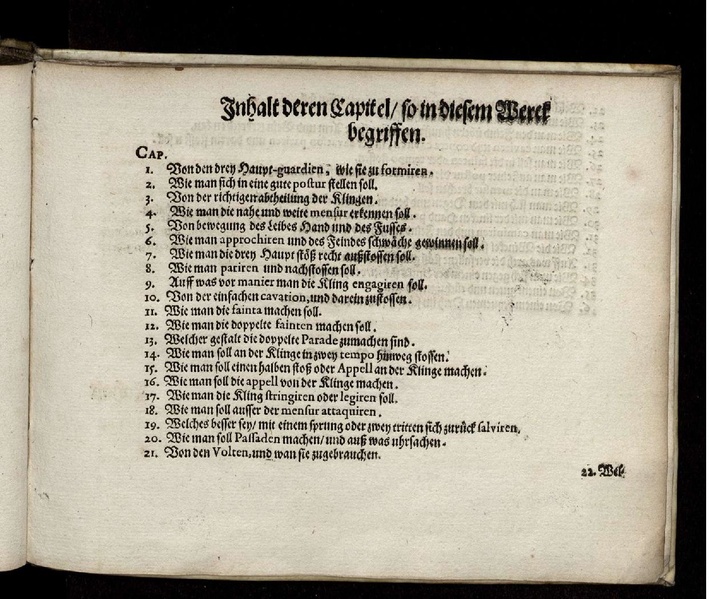 Inhalt deren Capitel/ so in diesem Werck
begriffen.
CAP.
1. Von den drey Haupt-guardien, wie sie zu formiren.
2. Wie man sich in eine gute postur stellen soll.
3. Von der richtigen abtheilung der Klingen.
4. Wie man die nahe und weite mensur erkennen soll.
5. Von bewegung des Leibes Hand und des Fusses.
6. Wie man approchiren und des Feindes schwäche gewinnen soll.
7. Wie man die drey Haupt stöß recht außstossen soll.
8. Wie man pariren und nachstossen soll.
9. Auff was vor manier man die Kling engagiren soll.
10. Von der einfachen cavation, und darein zustossen.
11. Wie man die fainta machen soll.
12. Wie man die doppelte fainten machen soll.
13. Welcher gestalt die doppelte Parade zumachen sind.
14. Wie man soll an der Klinge in zwey tempo hinweg stossen.
15. Wie man soll einen halben stoß oder Appell an der Klinge machen.
16. Wie man soll die appell von der Klinge machen.
17. Wie man die Kling stringiren oder legiren soll.
18. Wie man soll ausser der mensur attaquiren.
19. Welches besser sey/ mit einem sprung oder zwey tritten sich zurück salviren,
20. Wie man soll Passaden machen/ und auß was uhrsachen.
21. Von den Volten, und wan sie zugebrauchen.
22. Wel-